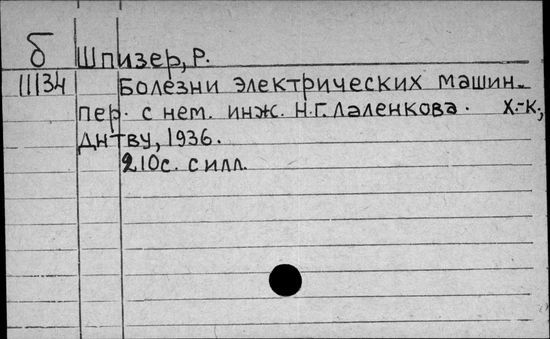 б Шпизер, Р.
11134 Болезни электрических машин.
пер. с нем. инж. Н.Г. Лаленкова. Х.-К.,
ДНТВУ, 1936.
210с. с илл.